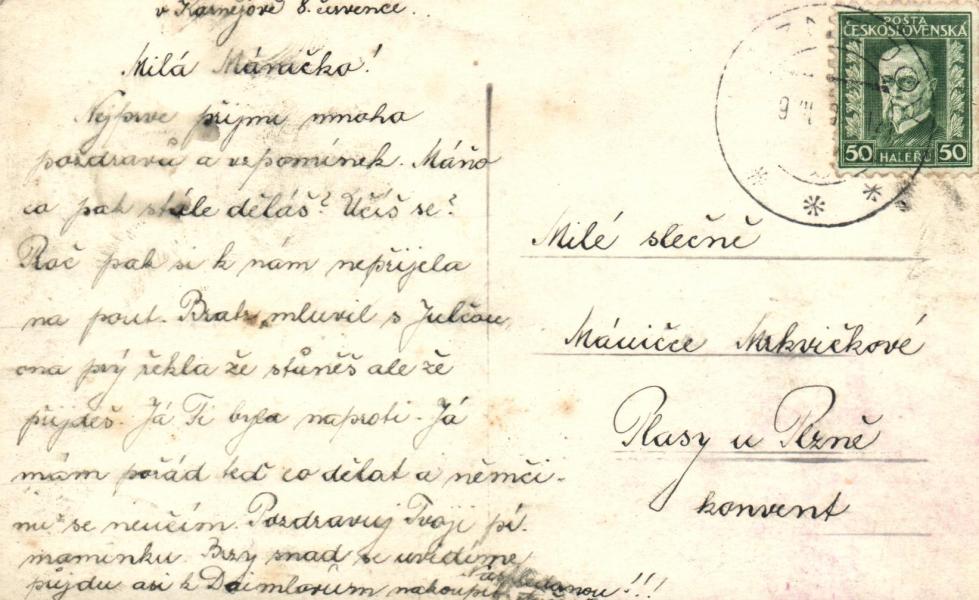 v Kaznějově 8. července.
Milá Máničko!
Nejprve přijmi mnoho
pozdravů a vzpomínek. Máňo
co pak stále děláš? Učíš se?
Proč pak si k nám nepřijela
na pout. Bratr mluvil s Julčou,
ona prý řekla že stůněš ale že
přijdeš. Já Ti byla naproti. Já
mám pořád teď co dělat a němči-
nu se neučím. Pozdravuj Tvoji pí.
maminku. Brzy snad se uvidíme
přijdu asi k Daimlovům nakoupit
!!!
POŠTA
ČESKOSLOVENSKÁ
50 HALÉŘŮ 50
Milé slečně
Máničce Mrkvičkové
Plasy u Plzně
konvent